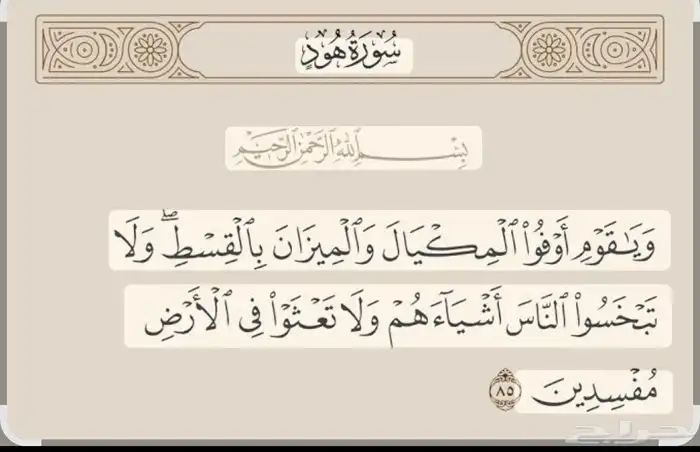 سُورَةُ هُودٍ
بِسْمِ اللَّهِ الرَّحْمَٰنِ الرَّحِيمِ
وَيَٰقَوْمِ أَوْفُوا۟ ٱلْمِكْيَالَ وَٱلْمِيزَانَ بِٱلْقِسْطِۖ وَلَا
تَبْخَسُوا۟ ٱلنَّاسَ أَشْيَآءَهُمْ وَلَا تَعْثَوْا۟ فِى ٱلْأَرْضِ
مُفْسِدِينَ ٨٥
حراج